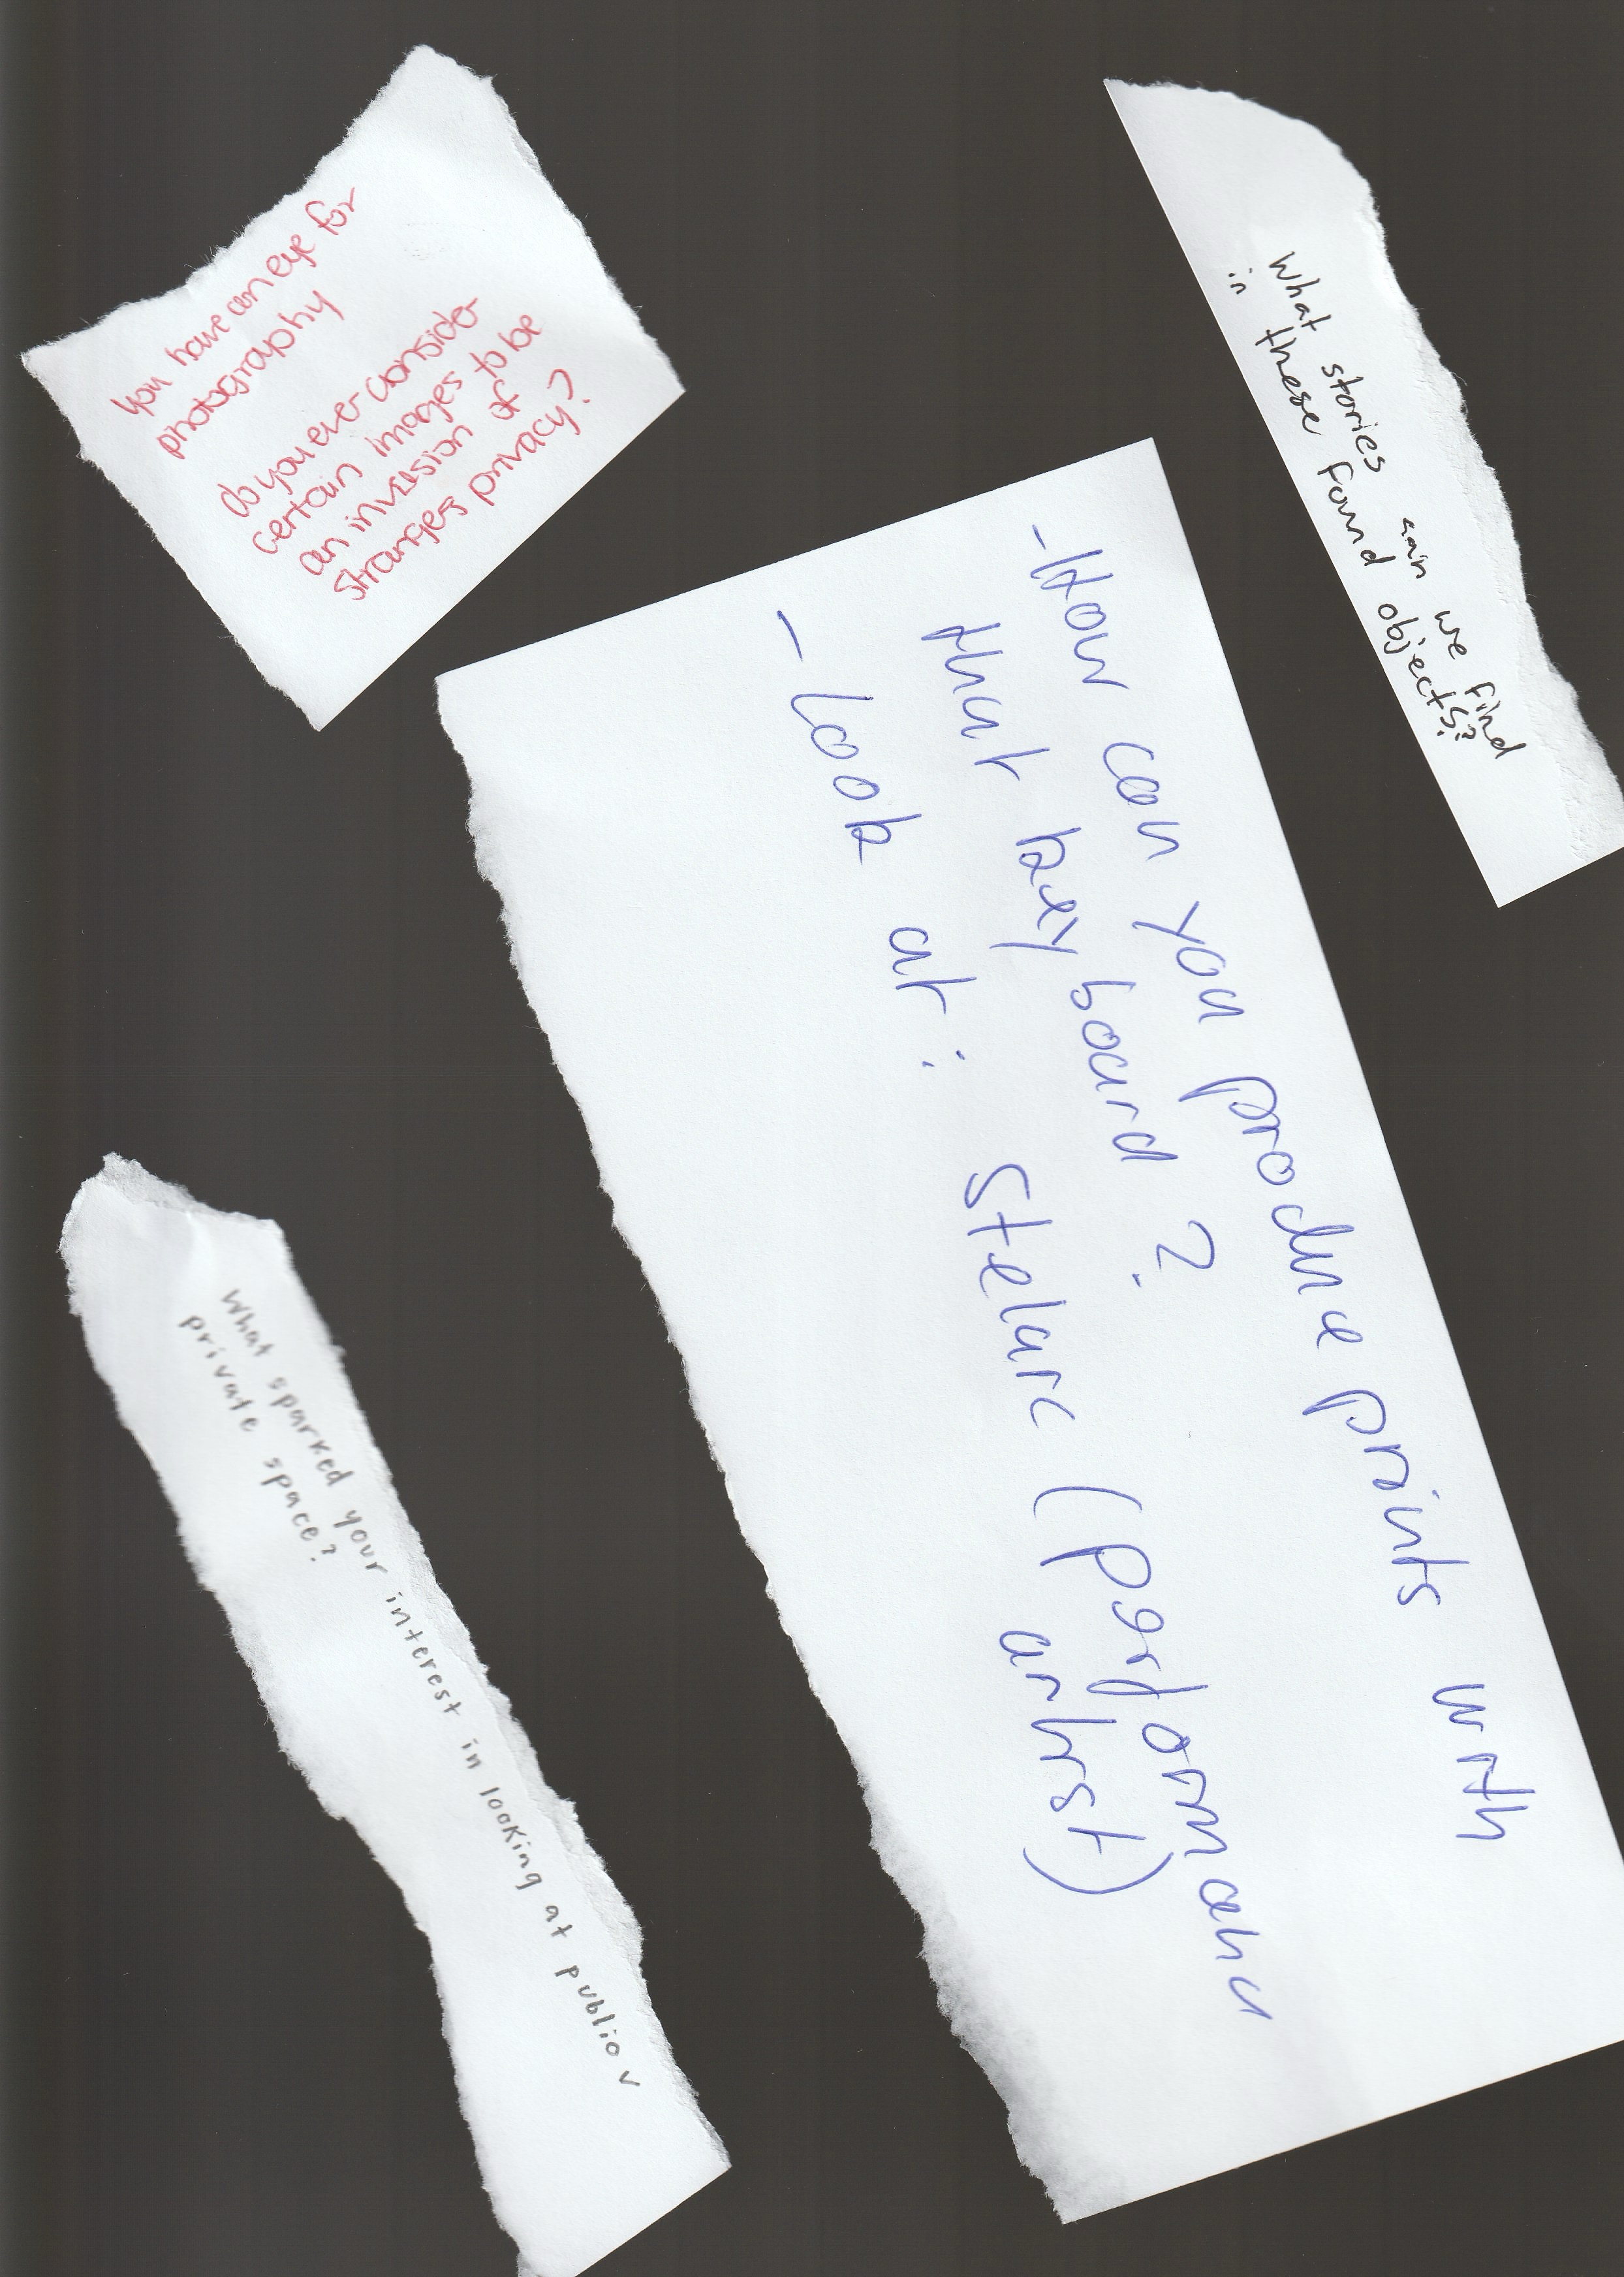 you have an eye for
photography
do you ever consider
certain images to be
an invasion of
strangers privacy?
What stories can we find
in these found objects?
-How can you produce prints with
that keyboard?
- look at: Stelarc (performance
artist)
What sparked your interest in looking at public v
private space?